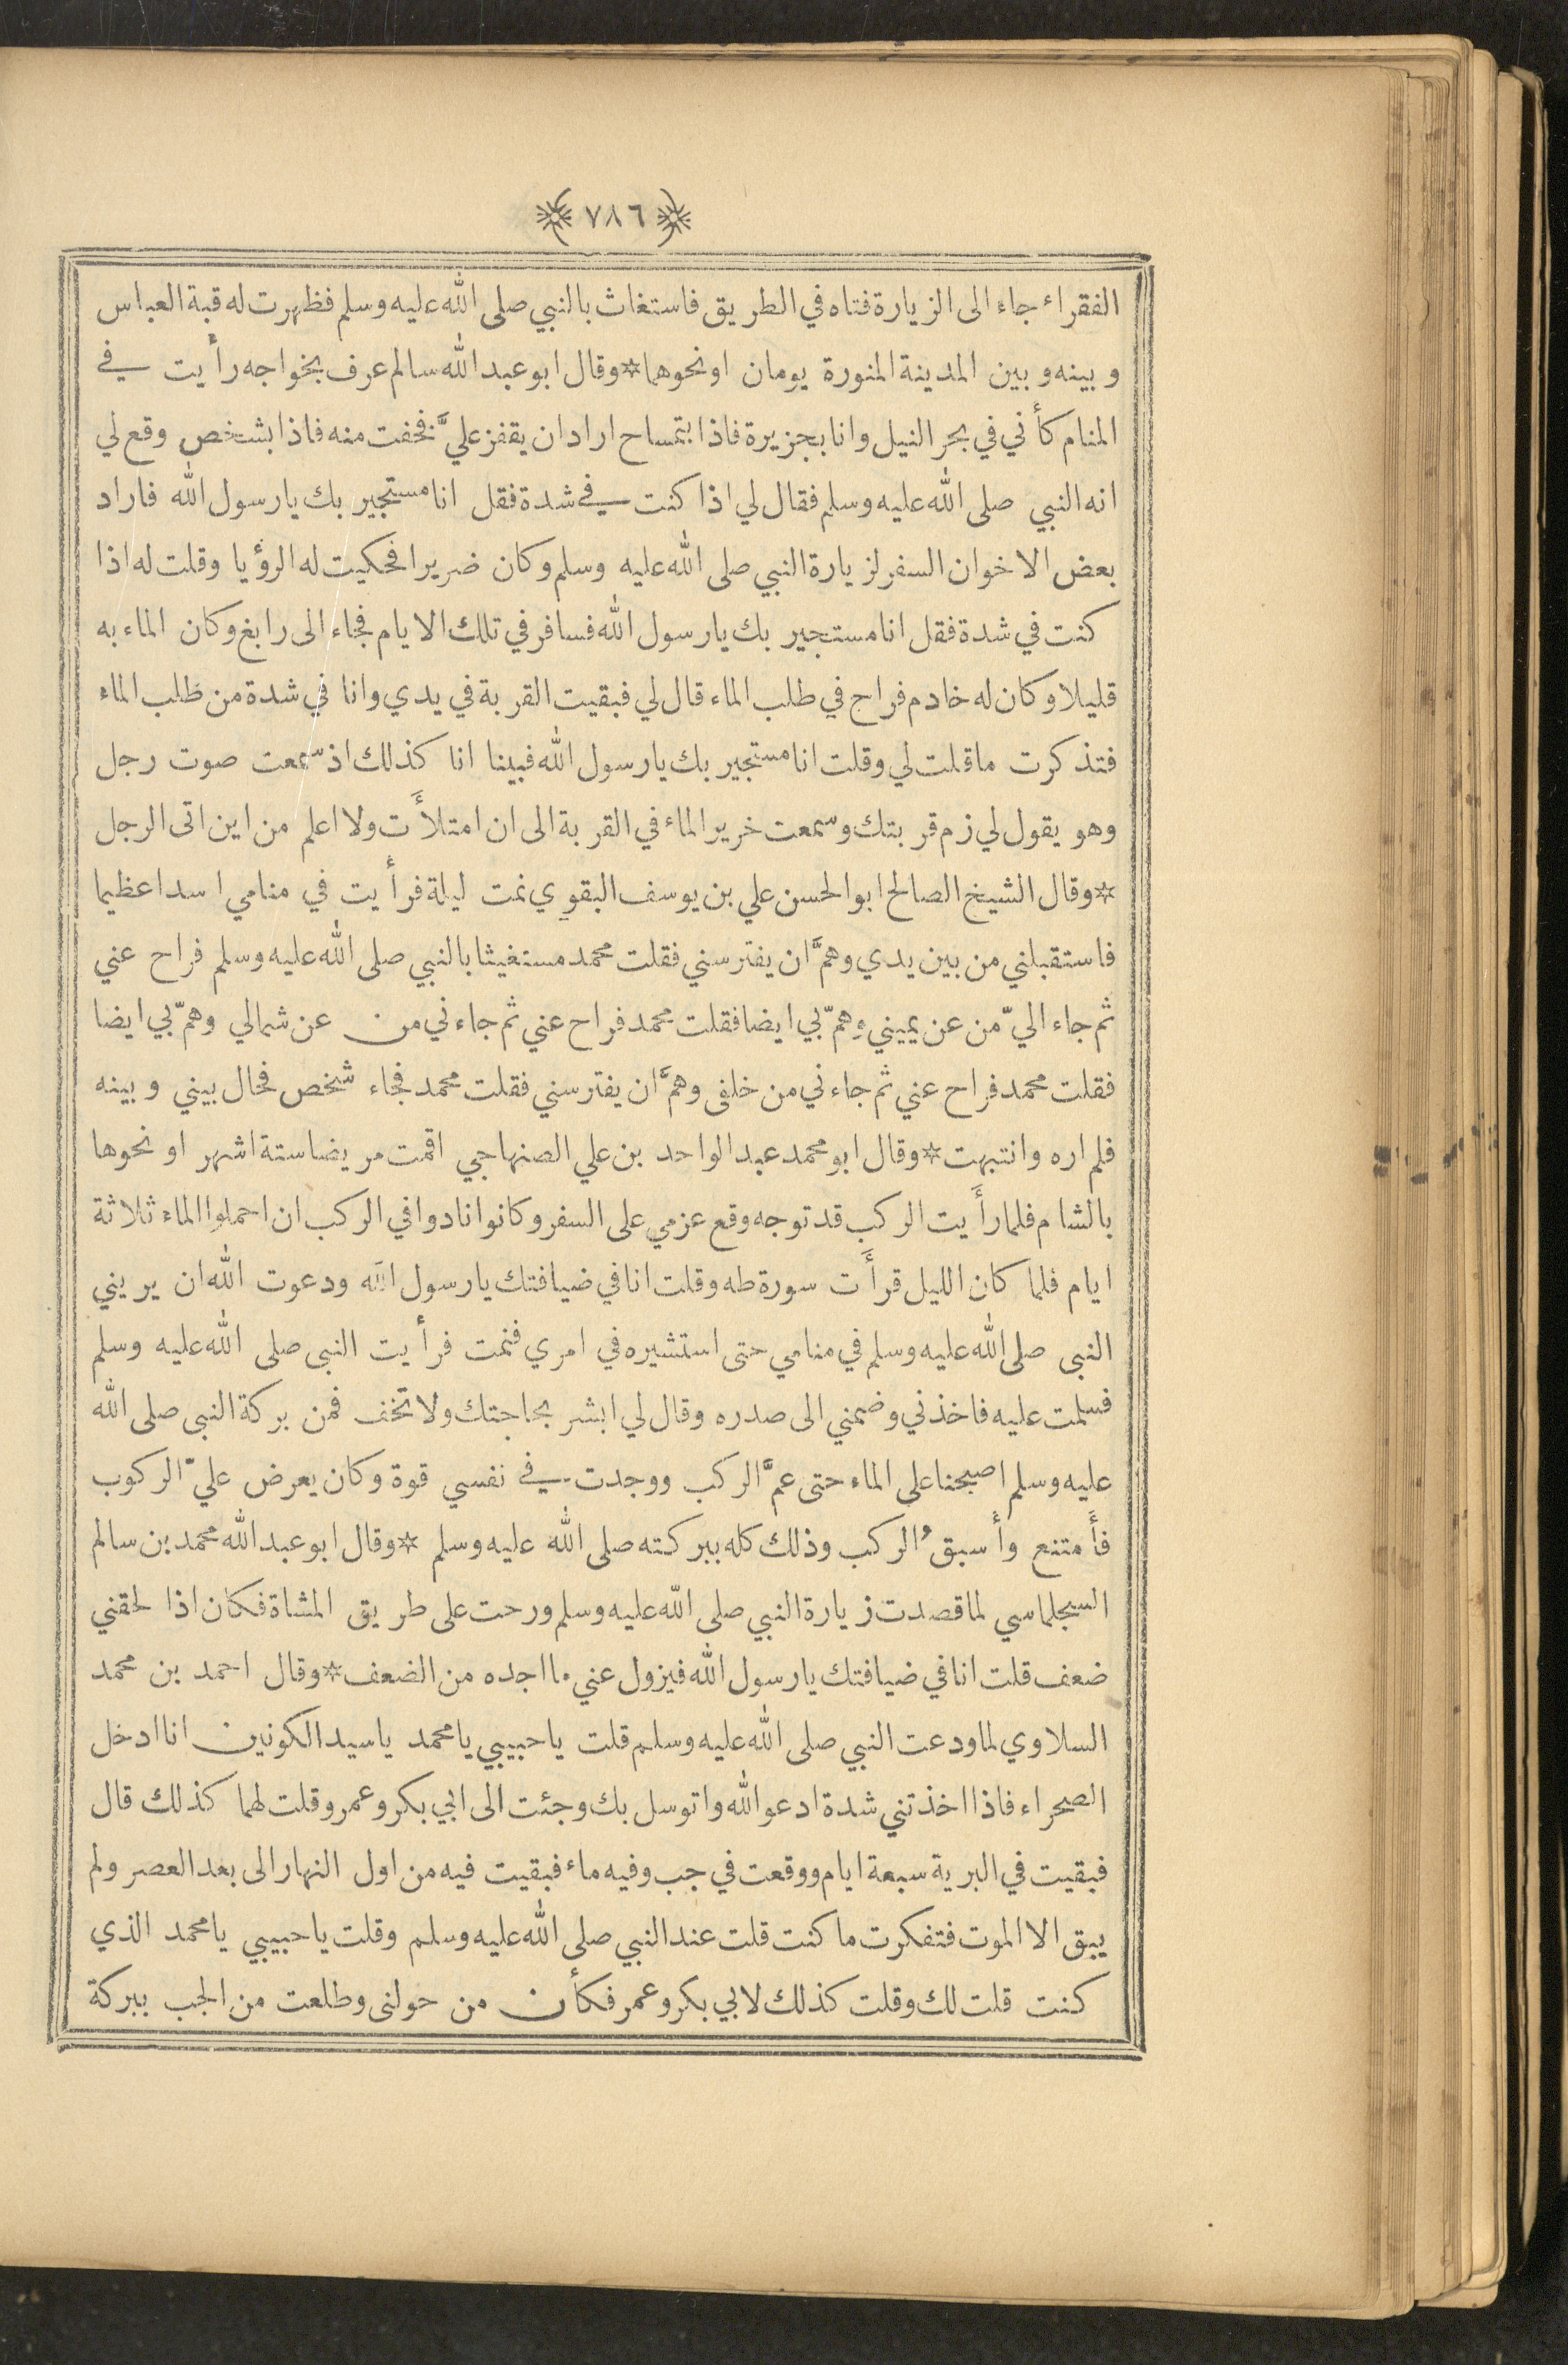 ٧٨٦
الفقراء جاء الى الزيارة فتاه في الطريق فاستغاث بالنبي صلى الله عليه وسلم فظهرت له قبة العباس
وبينه وبين المدينة المنورة يومان او نحوهما * وقال ابو عبد الله سالم عرف بخواجه رأيت في
المنام كأني في بحر النيل وانا بجزيرة فاذا بتمساح اراد ان يقفز عليَّ فخفت منه فاذا بشخص وقع لي
انه النبي صلى الله عليه وسلم فقال لي اذا كنت في شدة فقل انا مستجير بك يا رسول الله فاراد
بعض الاخوان السفر لزيارة النبي صلى الله عليه وسلم وكان ضريرا فحكيت له الرؤيا وقلت له اذا
كنت في شدة فقل انا مستجير بك يا رسول الله فسافر في تلك الايام فجاء الى رابغ وكان الماء به
قليلا وكان له خادم فراح في طلب الماء قال لي فبقيت القربة في يدي وانا في شدة من طلب الماء
فتذكرت ما قلت لي وقلت انا مستجير بك يا رسول الله فبينا انا كذلك اذ سمعت صوت رجل
وهو يقول لي زم قربتك وسمعت خرير الماء في القربة الى ان امتلأَت ولا اعلم من اين اتى الرجل
* وقال الشيخ الصالح ابو الحسن علي بن يوسف البقوي نمت ليلة فرأيت في منامي اسدا عظيما
فاستقبلني من بين يدي وهمَّ ان يفترسني فقلت محمد مستغيثا بالنبي صلى الله عليه وسلم فراح عني
ثم جاء اليّ من عن يميني وهمّ بي ايضا فقلت محمد فراح عني ثم جاءني من عن شمالي وهمّ بي ايضا
فقلت محمد فراح عني ثم جاءني من خلفى وهمَّ ان يفترسني فقلت محمد فجاء شخص فحال بيني وبينه
فلم اره وانتبهت * وقال ابو محمد عبد الواحد بن علي الصنهاجي اقمت مريضا ستة اشهر او نحوها
بالشام فلما رأَيت الركب قد توجه وقع عزمي على السفر وكانوا نادوا في الركب ان احملوا الماء ثلاثة
ايام فلما كان الليل قرأَت سورة طه وقلت انا في ضيافتك يا رسول الله ودعوت الله ان يريني
النبى صلى الله عليه وسلم في منامي حتى استشيره في امري فنمت فرأيت النبى صلى الله عليه وسلم
فسلمت عليه فاخذني وضمني الى صدره وقال لي ابشر بحاجتك ولا تخف فمن بركة النبى صلى الله
عليه وسلم اصبحنا على الماء حتى عمَّ الركب ووجدت في نفسي قوة وكان يعرض عليّ الركوب
فأَمتنع وأَسبقُ الركب وذلك كله ببركته صلى الله عليه وسلم * وقال ابو عبد الله محمد بن سالم
السجلماسي لما قصدت زيارة النبي صلى الله عليه وسلم ورحت على طريق المشاة فكان اذا لحقني
ضعف قلت انا في ضيافتك يا رسول الله فيزول عني ما اجده من الضعف * وقال احمد بن محمد
السلاوي لما ودعت النبي صلى الله عليه وسلم قلت يا حبيبي يا محمد يا سيد الكونين انا ادخل
الصحراء فاذا اخذتني شدة ادعو الله واتوسل بك وجئت الى ابي بكر وعمر وقلت لهما كذلك قال
فبقيت في البرية سبعة ايام ووقعت في جب وفيه ماء فبقيت فيه من اول النهار الى بعد العصر ولم
يبق الا الموت فتفكرت ما كنت قلت عند النبي صلى الله عليه وسلم وقلت يا حبيبي يا محمد الذي
كنت قلت لك وقلت كذلك لابي بكر وعمر فكأن من حولنى وطلعت من الجب ببركة